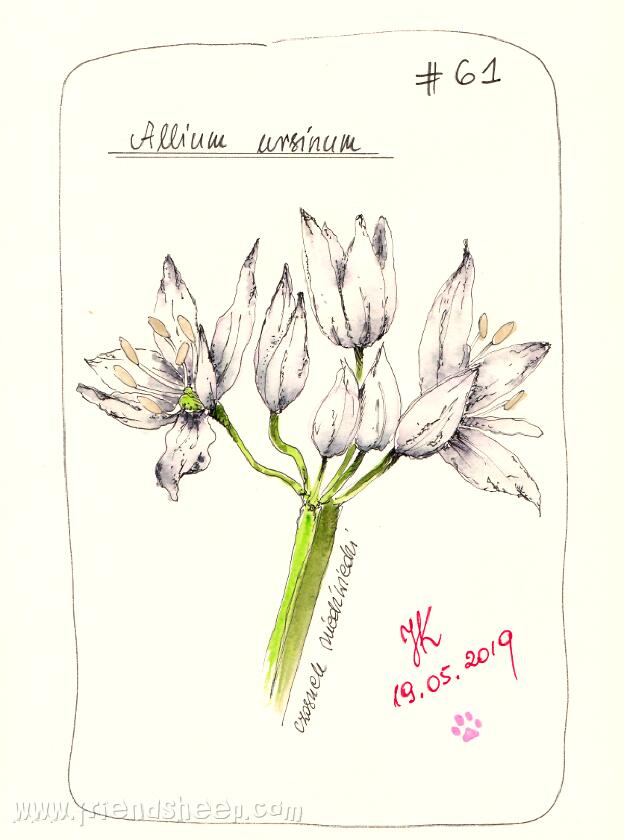 # 61
Allium ursinum
czosnek niedźwiedzi
JK
19.05.2019
www.friendsheep.com